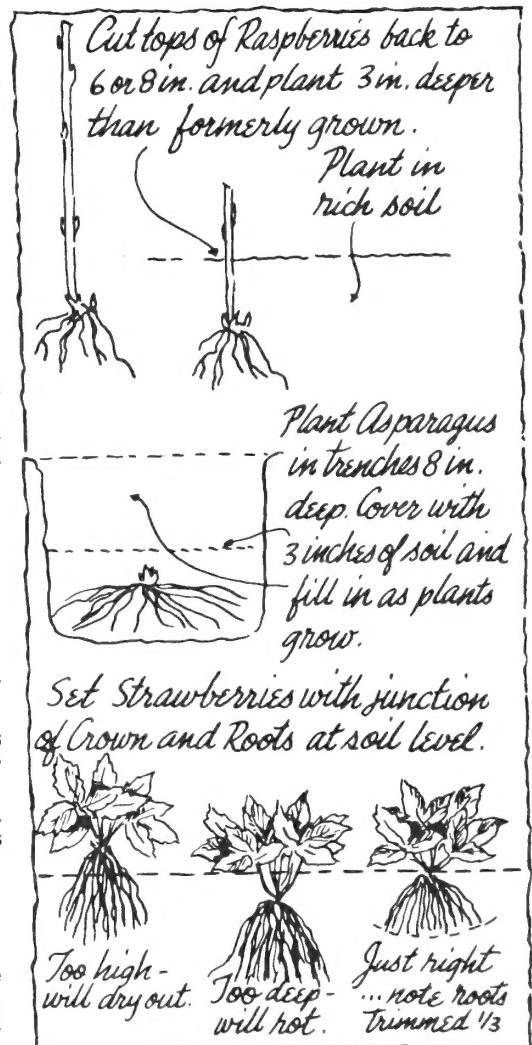 Cut tops of Raspberries back to
6 or 8 in. and plant 3 in. deeper
than formerly grown.
Plant in
rich soil
Plant Asparagus
in trenches 8 in.
deep. Cover with
3 inches of soil and
fill in as plants
grow.
Set Strawberries with junction
of Crown and Roots at soil level.
Too high -
will dry out.
Too deep -
will rot.
Just right
...note roots
trimmed 1/3